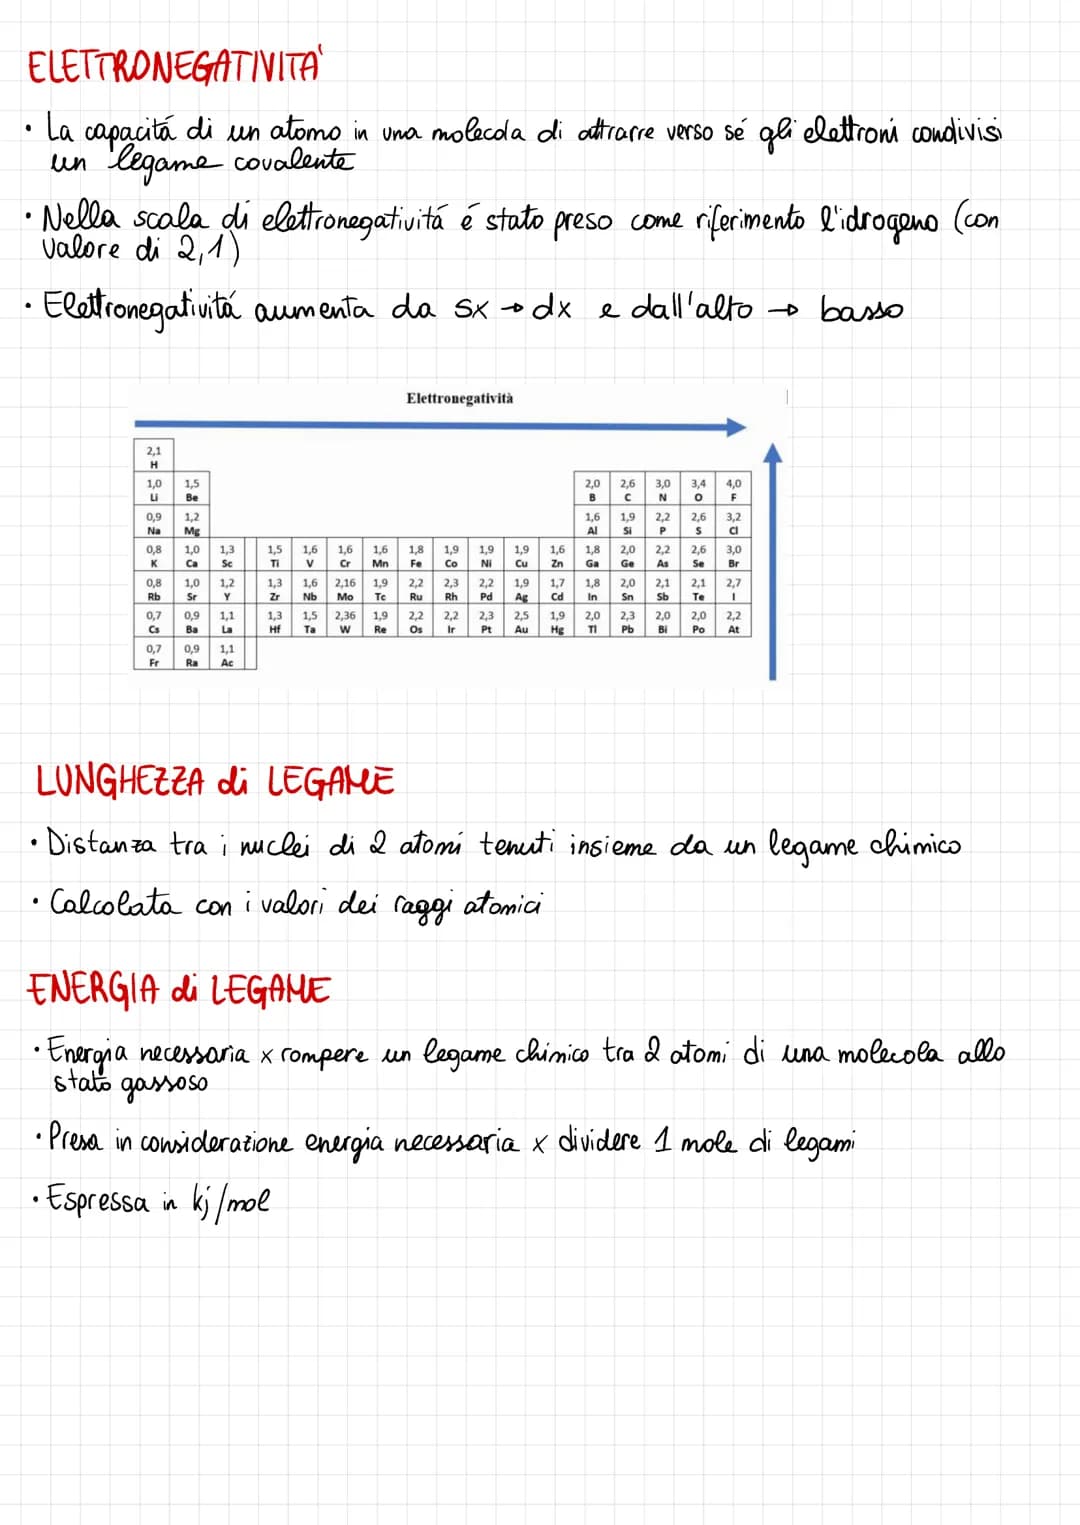 ELETTRONEGATIVITA'
• La capacitá di un atomo in una molecola di attrarre verso sé gli elettroni condivisi
un legame covalente
• Nella scala di elettronegativitá é stato preso come riferimento l'idrogeno (con
valore di 2,1)
• Elettronegativitá aumenta da sx → dx e dall'alto → basso
Elettronegatività
2,1
H
1,0 1,5 2,0 2,6 3,0 3,4 4,0
Li Be B C N O F
0,9 1,2 1,6 1,9 2,2 2,6 3,2
Na Mg Al Si P S Cl
0,8 1,0 1,3 1,5 1,6 1,6 1,6 1,8 1,9 1,9 1,9 1,6 1,8 2,0 2,2 2,6 3,0
K Ca Sc Ti V Cr Mn Fe Co Ni Cu Zn Ga Ge As Se Br
0,8 1,0 1,2 1,3 1,6 2,16 1,9 2,2 2,3 2,2 1,9 1,7 1,8 2,0 2,1 2,1 2,7
Rb Sr Y Zr Nb Mo Tc Ru Rh Pd Ag Cd In Sn Sb Te I
0,7 0,9 1,1 1,3 1,5 2,36 1,9 2,2 2,2 2,3 2,5 1,9 2,0 2,3 2,0 2,0 2,2
Cs Ba La Hf Ta W Re Os Ir Pt Au Hg Tl Pb Bi Po At
0,7 0,9 1,1
Fr Ra Ac
LUNGHEZZA di LEGAME
• Distanza tra i nuclei di 2 atomi tenuti insieme da un legame chimico
• Calcolata con i valori dei raggi atomici
ENERGIA di LEGAME
• Energia necessaria x rompere un legame chimico tra 2 atomi di una molecola allo
stato gassoso
• Presa in considerazione energia necessaria x dividere 1 mole di legami
• Espressa in kj/mol